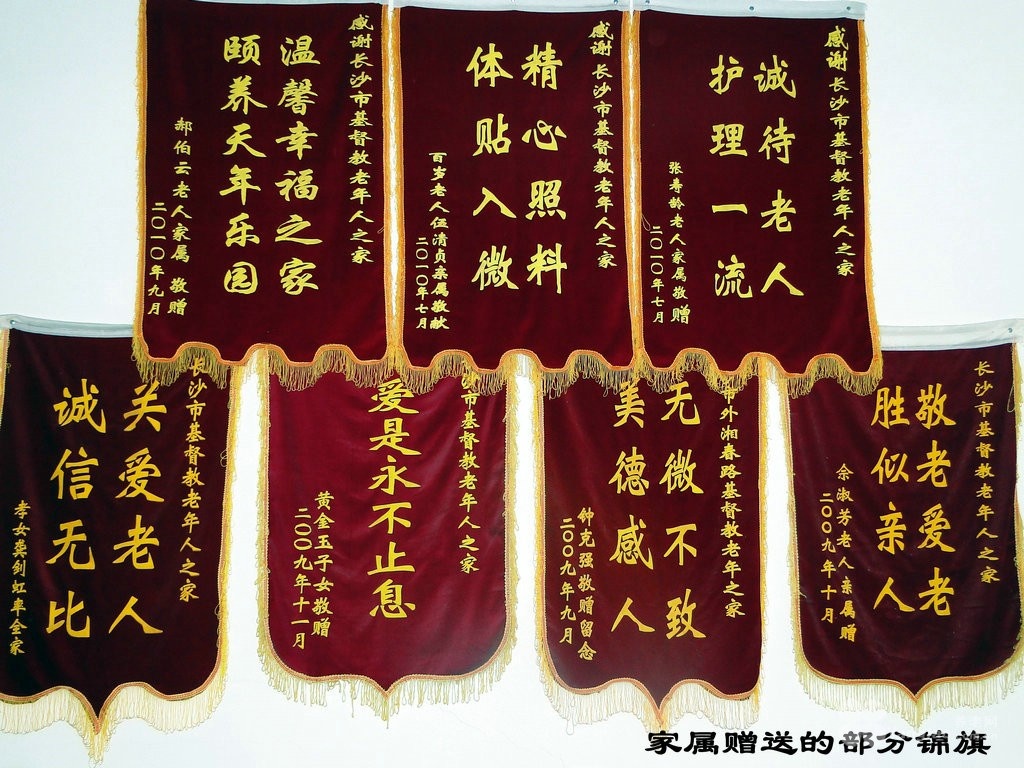 感谢长沙市基督教老年人之家
温馨幸福之家
颐养天年乐园
郝伯云老人家属 敬赠
二〇一〇年九月
感谢长沙市基督教老年人之家
精心照料
体贴入微
百岁老人伍清贞亲属敬献
二〇一〇年七月
感谢长沙市基督教老年人之家
诚待老人
护理一流
张寿龄老人家属敬赠
二〇一〇年七月
长沙市基督教老年人之家
关爱老人
诚信无比
孝女龚剑虹率全家
沙市基督教老年人之家
爱是永不止息
黄金玉子女敬赠
二〇〇九年十一月
市外湘春路基督教老年之家
无微不致
美德感人
钟克强敬赠留念
二〇〇九年九月
长沙市基督教老年人之家
敬老爱老
胜似亲人
余淑芳老人亲属赠
二〇〇九年十月
家属赠送的部分锦旗